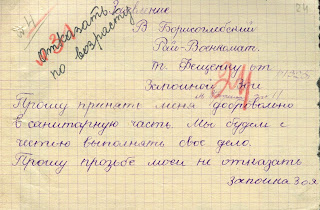 24
Заявление
Отказать
по возрасту
В Борисоглебский
Рай-Военкомат.
т. Фещенку от
Запойной Зои
Прошу принять меня добровольно
в санитарную часть. Мы будем с
честию выполнять свое дело.
Прошу прозьбе моей не отказать
Запойка Зоя